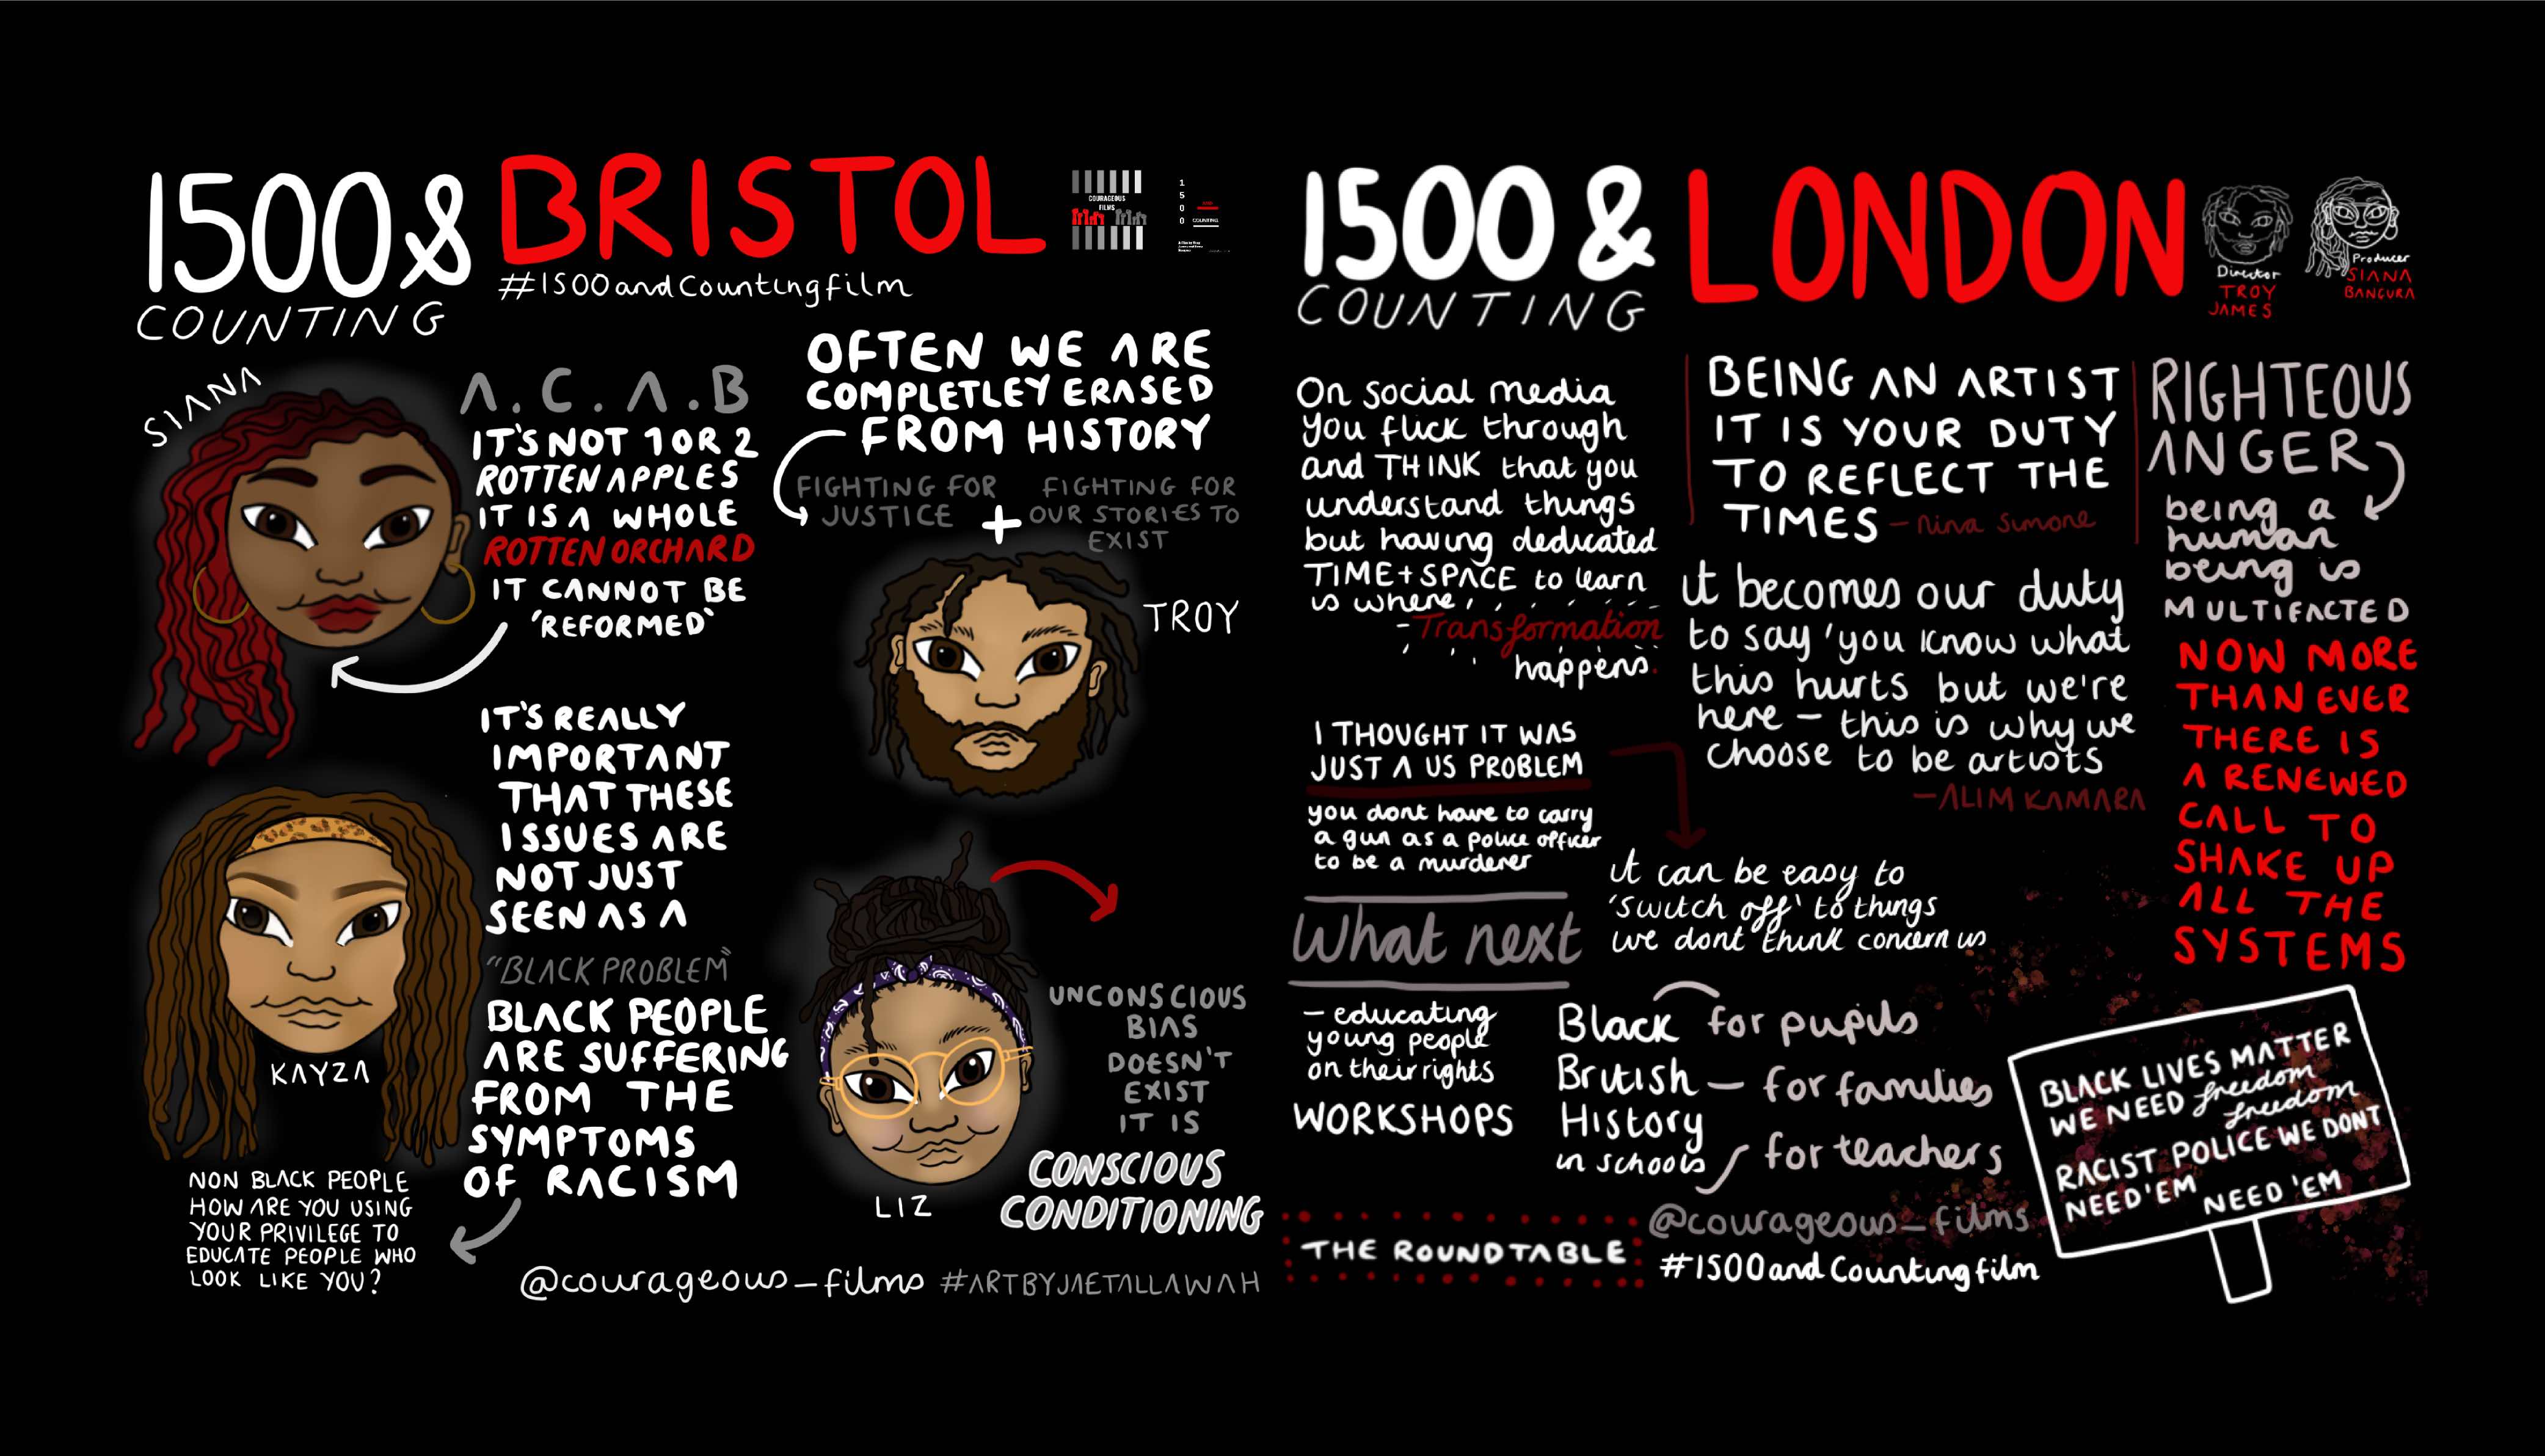 1500&
COUNTING
BRISTOL
#1500andCountingfilm
COURAGEOUS
FILMS
1
5
0
0
COUNTING
SIANA
A.C.A.B
IT'S NOT 1 OR 2
ROTTEN APPLES
IT IS A WHOLE
ROTTEN ORCHARD
IT CANNOT BE
'REFORMED'
OFTEN WE ARE
COMPLETLEY ERASED
FROM HISTORY
FIGHTING FOR
JUSTICE
+
FIGHTING FOR
OUR STORIES TO
EXIST
TROY
IT'S REALLY
IMPORTANT
THAT THESE
ISSUES ARE
NOT JUST
SEEN AS A
"BLACK PROBLEM"
BLACK PEOPLE
ARE SUFFERING
FROM THE
SYMPTOMS
OF RACISM
KAYZA
NON BLACK PEOPLE
HOW ARE YOU USING
YOUR PRIVILEGE TO
EDUCATE PEOPLE WHO
LOOK LIKE YOU?
LIZ
UNCONSCIOUS
BIAS
DOESN'T
EXIST
IT IS
CONSCIOUS
CONDITIONING
@courageous_films #ARTBYJAETALLAWAH
1500 &
COUNTING
LONDON
Director
TROY
JAMES
Producer
SIANA
BANGURA
On social media
you flick through
and THINK that you
understand things
but having dedicated
TIME+SPACE to learn
is where
- Transformation
happens.
BEING AN ARTIST
IT IS YOUR DUTY
TO REFLECT THE
TIMES - nina simone
it becomes our duty
to say 'you know what
this hurts but we're
here - this is why we
choose to be artists
- ALIM KAMARA
RIGHTEOUS
ANGER
being a
human
being is
MULTIFACTED
NOW MORE
THAN EVER
THERE IS
A RENEWED
CALL TO
SHAKE UP
ALL THE
SYSTEMS
I THOUGHT IT WAS
JUST A US PROBLEM
you dont have to carry
a gun as a police officer
to be a murderer
it can be easy to
'switch off' to things
we dont think concern us
What next
- educating
young people
on their rights
WORKSHOPS
Black
British
History
in schools
for pupils
for families
for teachers
THE ROUNDTABLE
@courageous_films
#1500andCountingfilm
BLACK LIVES MATTER
WE NEED freedom
freedom
RACIST POLICE WE DONT
NEED 'EM
NEED 'EM